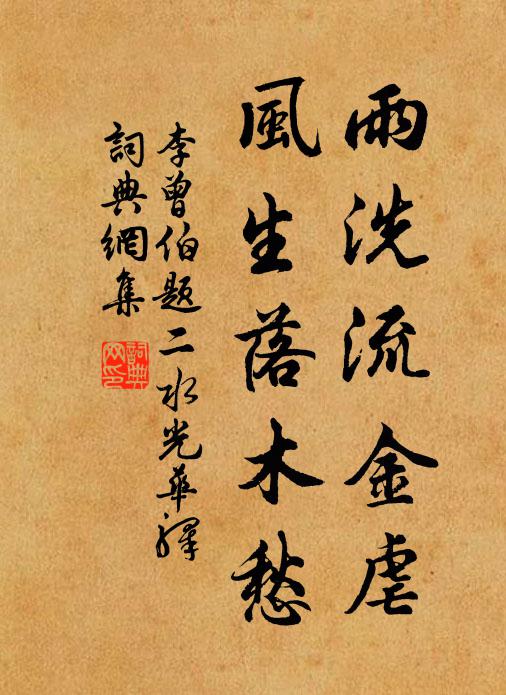 雨洗流金虐
風生落木愁
李曾伯題二水光華驛
詞典網集
詞典網印